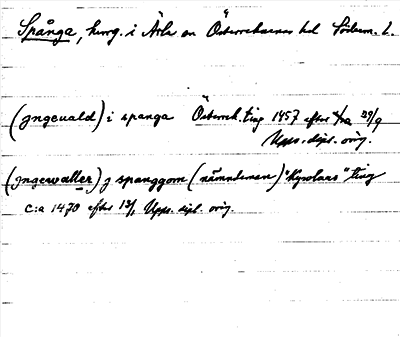 Spånga, herrg. i Ärla sn Österrekarnes hd Söderm. l.
(jngeuald) i spanga Österrek. ting 1457 efter 29/9
Upps. dipl. orig.
(jngewaller) j spanggom (nämndeman) "Kyrolaxs" ting
c:a 1470 efter 13/1 Upps. dipl. orig.